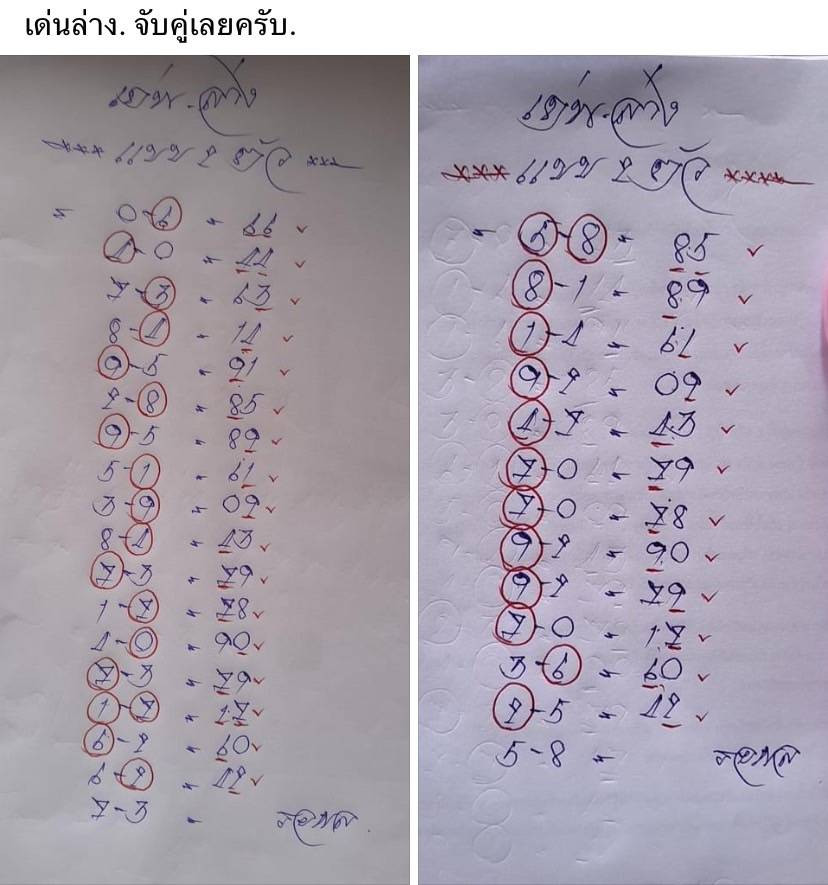 เด่นล่าง. จับคู่เลยครับ.
เด่น-ล่าง
*** แบบ 2 ตัว ***
= 0-6 = 66 ✓
4-0 = 44 ✓
7-3 = 63 ✓
8-4 = 14 ✓
9-5 = 91 ✓
2-8 = 85 ✓
9-5 = 89 ✓
5-1 = 61 ✓
3-9 = 09 ✓
8-4 = 43 ✓
7-3 = 79 ✓
1-7 = 78 ✓
4-0 = 90 ✓
7-3 = 79 ✓
1-7 = 17 ✓
6-2 = 60 ✓
6-2 = 42 ✓
7-3 = รอผล.
เด่น-ล่าง
**** แบบ 2 ตัว ****
= 5-8 = 85 ✓
8-1 = 89 ✓
1-4 = 61 ✓
9-2 = 09 ✓
4-7 = 43 ✓
7-0 = 79 ✓
7-0 = 78 ✓
9-2 = 90 ✓
9-2 = 79 ✓
7-0 = 17 ✓
3-6 = 60 ✓
2-5 = 42 ✓
5-8 = รอผล